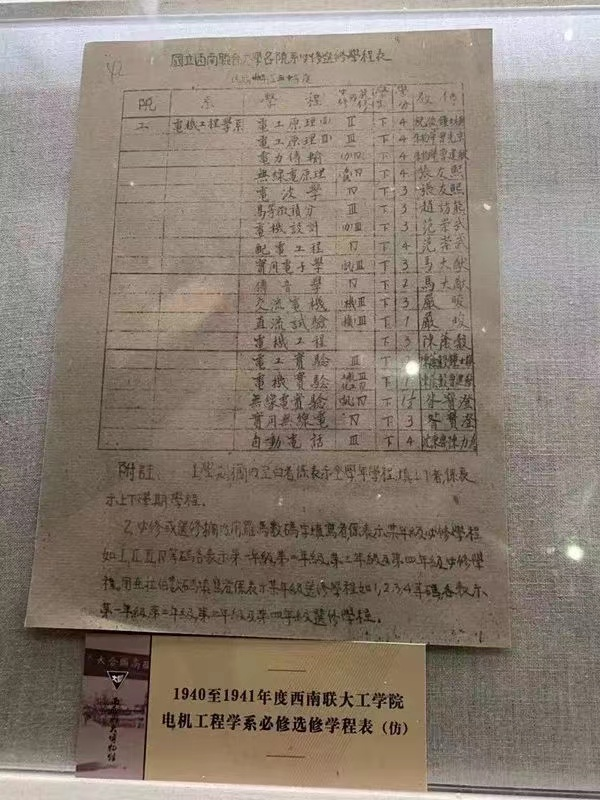 國立西南聯合大學各院系必修選修學程表
院 系 學程 學期 學分 教師
工 電機工程學系 電工原理(II) III 下 4
電工原理(II) III 下 4
電力傳輸 下 4
無線電原理 下 4 張友熙
電波學 IV 下 3 張友熙
高等微積分 III 下 3 趙訪熊
電機設計 下 3 范崇武
配電工程 IV 下 4 范崇武
實用電子學 下 3 馬大猷
傳音學 IV 下 2 馬大猷
交流電機 機III 下 3 嚴晙
直流試驗 機III 下 1 嚴晙
電機工程 下 3 陳蔭穀
電工實驗 III 下
電機實驗 下 1
無線電實驗 下 1.5 昝寶澄
實用無線電 IV 下 3 昝寶澄
自動電話 III 下 4
附註: 1.學期欄內空白者係表示全學年學程,填上下者,係表
示上下學期學程。
2.必修或選修欄內用羅馬數碼字填寫者係表示某年級必修學程
如I,II,III,IV等碼各表示第一年級,第二年級,第三年級及第四年級必修學
程,用亞拉伯數碼填寫者係表示某年級選修學程如1,2,3,4等碼各表示
第一年級,第二年級,第三年級及第四年級選修學程。
1940至1941年度西南联大工学院
电机工程学系必修选修学程表（仿）